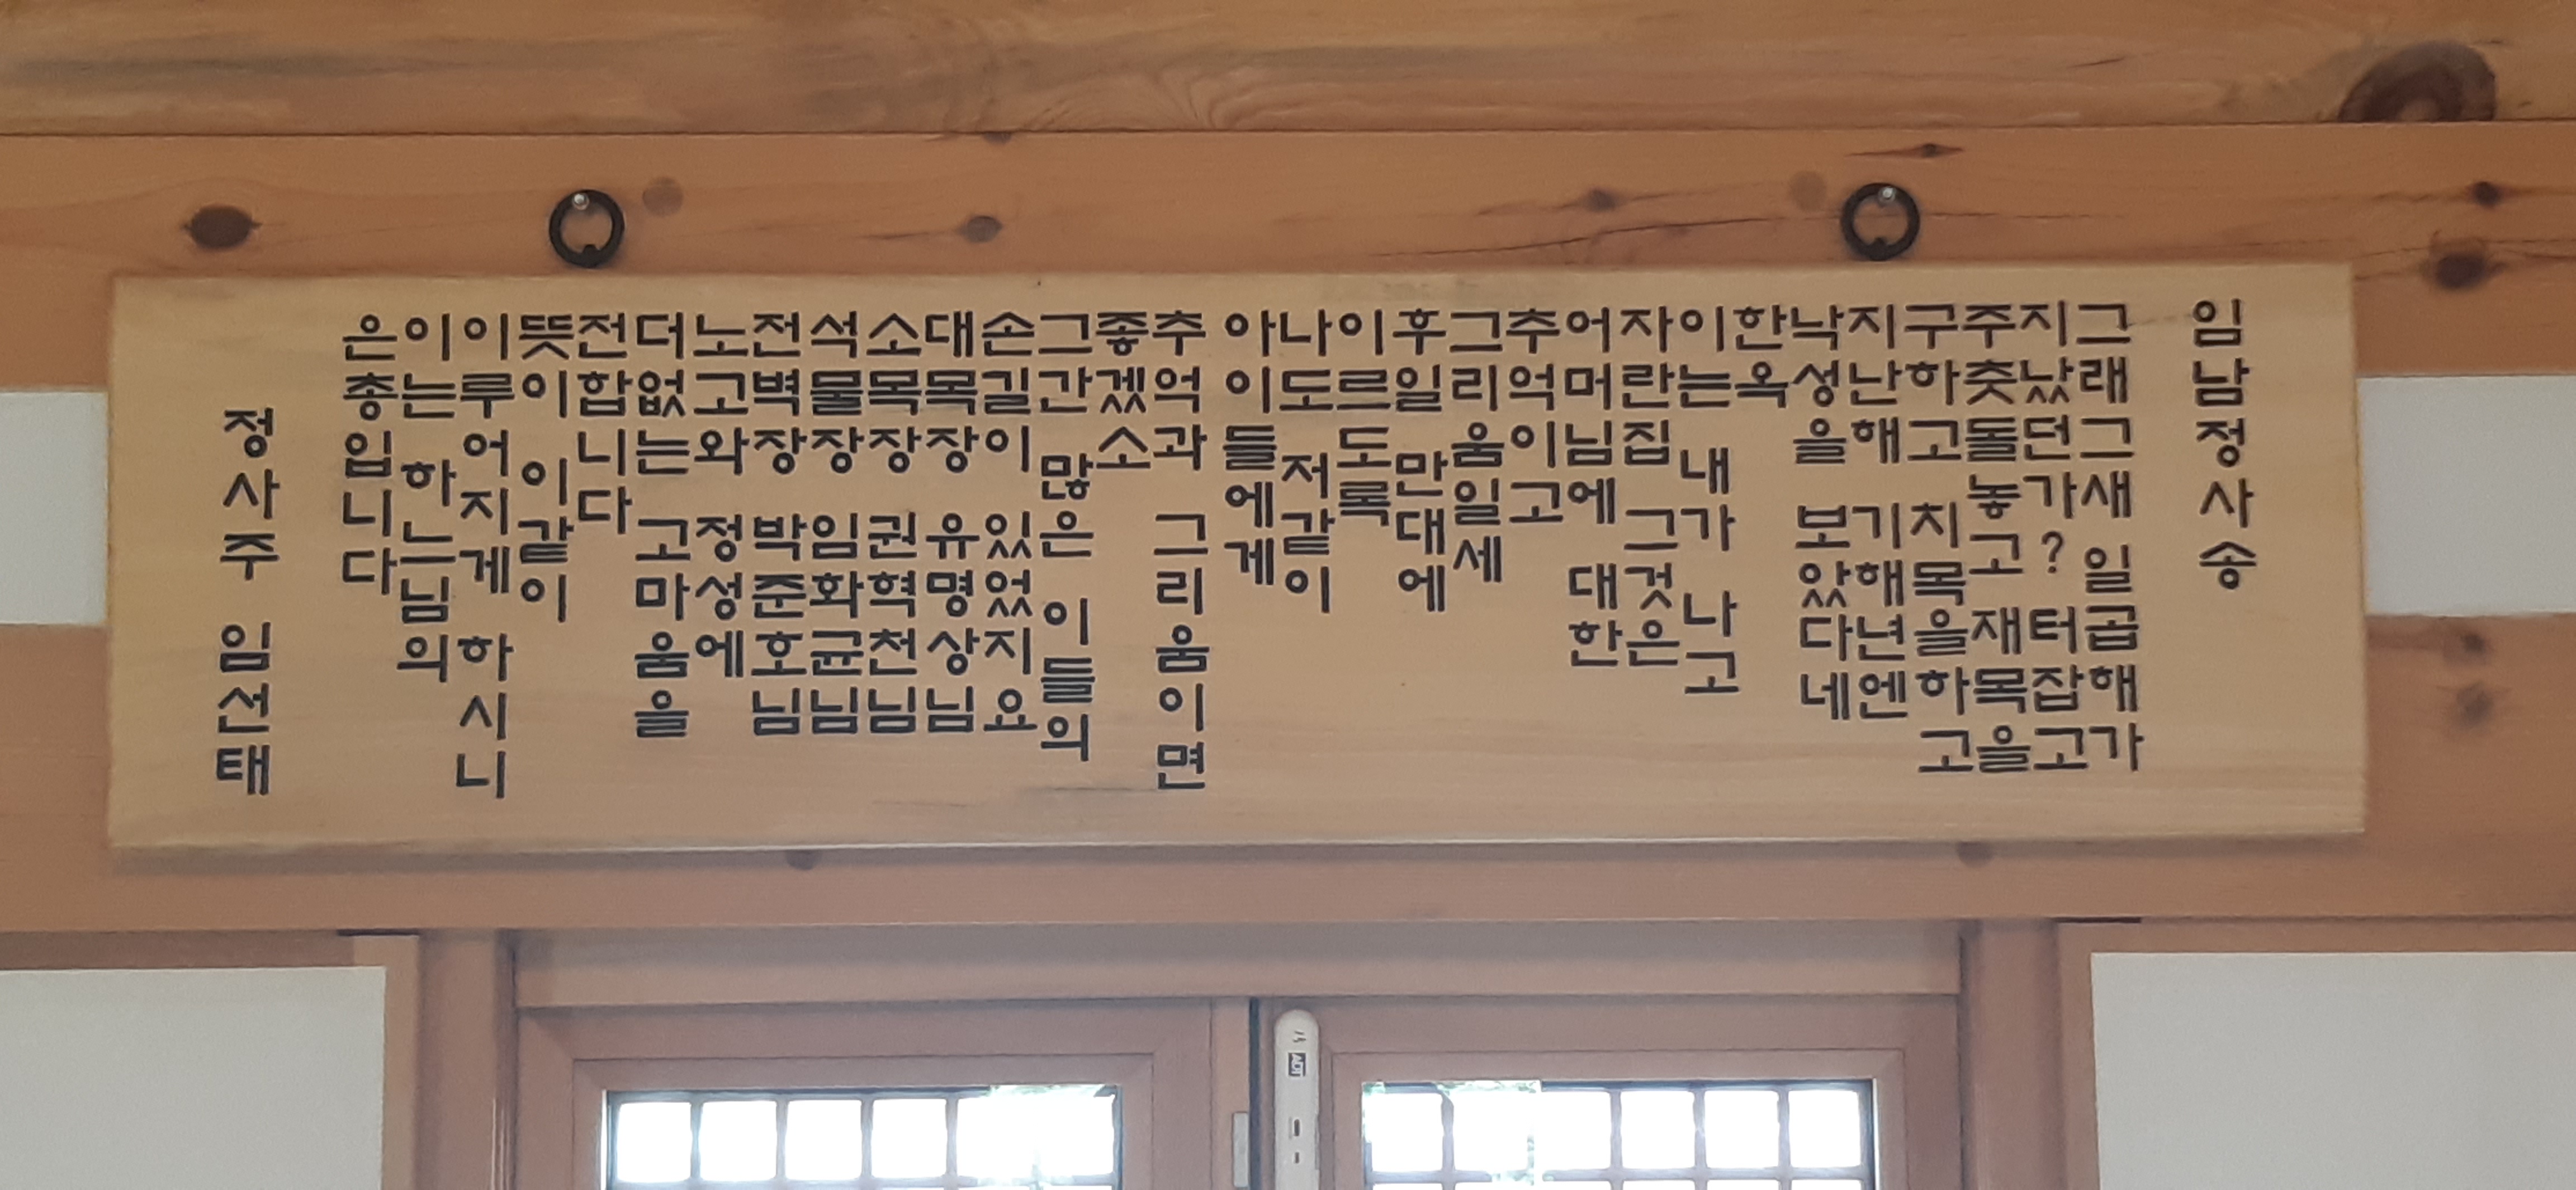 임남정사송
그래그새 일곱해가
지났던가? 터잡고
주춧돌놓고 재목을
구하고 치목을하고
지난해 기해년엔
낙성을 보았다네
한옥
이는 내가 나고
자란집 그것은
어머님에 대한
추억이고
그리움일세
후일 만대에
이르도록
나도 저같이
아이들에게
추억과 그리움이면
좋겠소
그간 많은 이들의
손길이 있었지요
대목장 유명상님
소목장 권혁천님
석물장 임화균님
전벽장 박준호님
노고와 정성에
더없는 고마움을
전합니다
뜻이 이같이
이루어지게 하시니
이는 하느님의
은총입니다
정사주 임선태
ADT